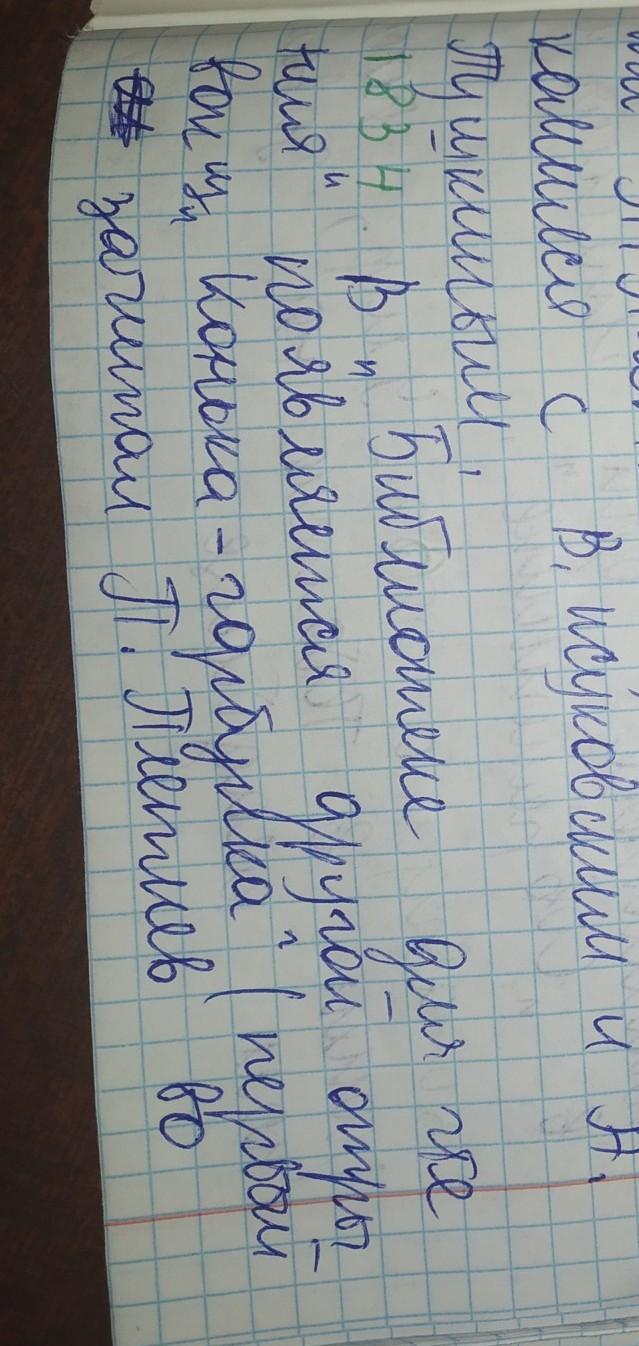 комился с В. Жуковским и А.
Пушкиным.
1834. В "Библиотеке для чте
ния" появляется другой отры-
вок из "Конька-горбунка" (первый
зачитал П. Плетнев во